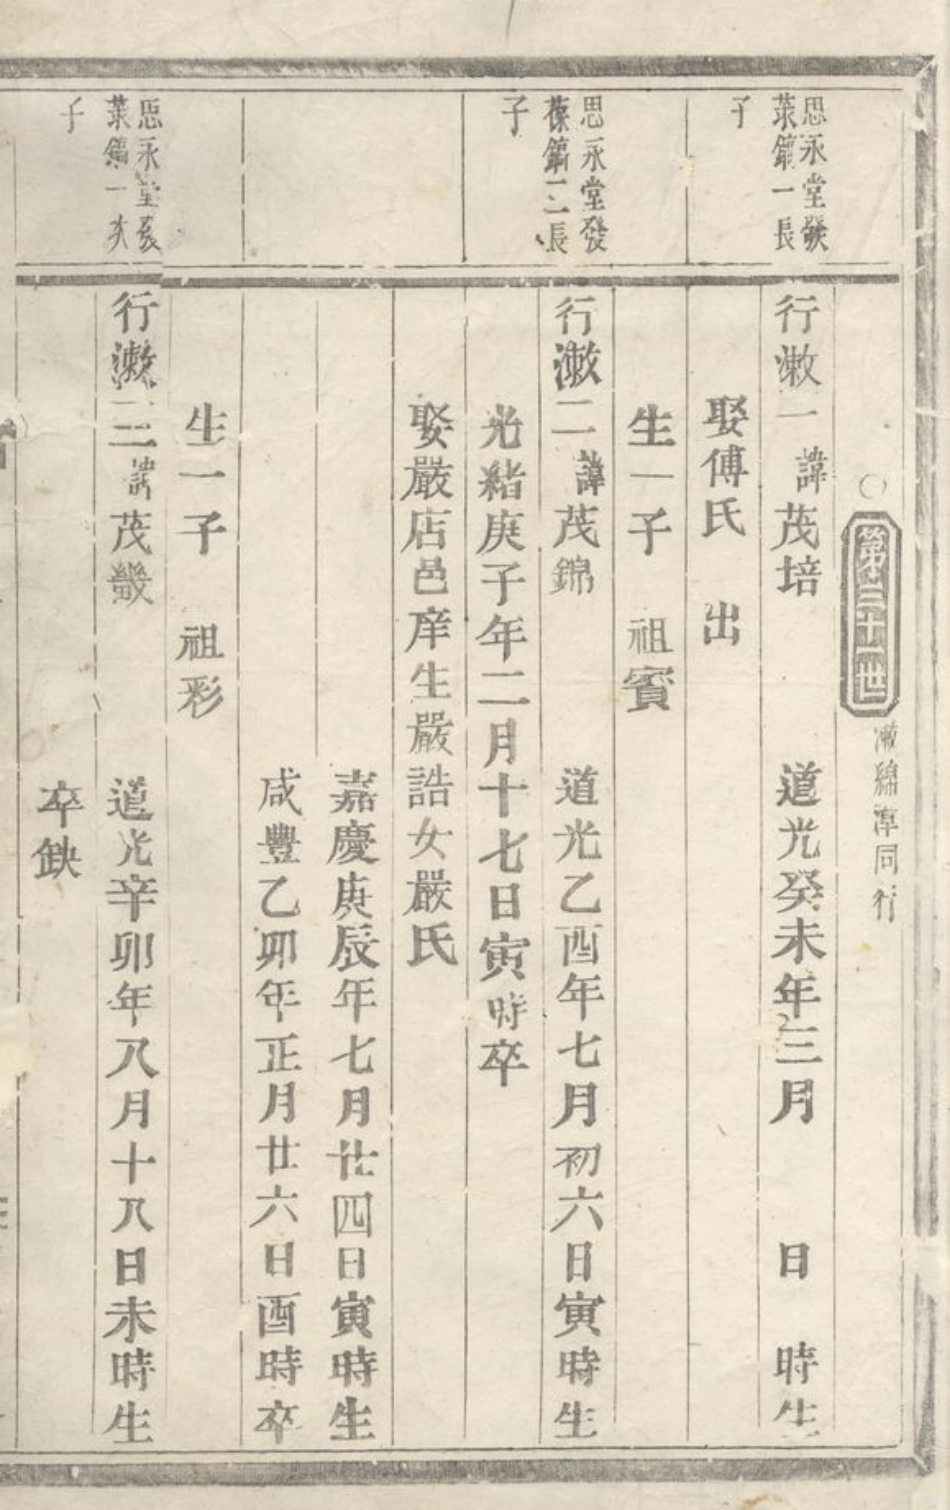 ○第三十四世
漱綿淳同行
思永堂發
萊鎬一長
子
行漱一 諱茂培 道光癸未年三月 日 時生
娶傅氏 出
生一子 祖賓
思永堂發
葆鎬二長
子
行漱二 諱茂錦 道光乙酉年七月初六日寅時生
光緒庚子年二月十七日寅時卒
娶嚴店邑庠生嚴誥女嚴氏
嘉慶庚辰年七月廿四日寅時生
咸豐乙卯年正月廿六日酉時卒
生一子 祖彩
思永堂發
萊鎬一次
子
行漱三 諱茂畿 道光辛卯年八月十八日未時生
卒缺